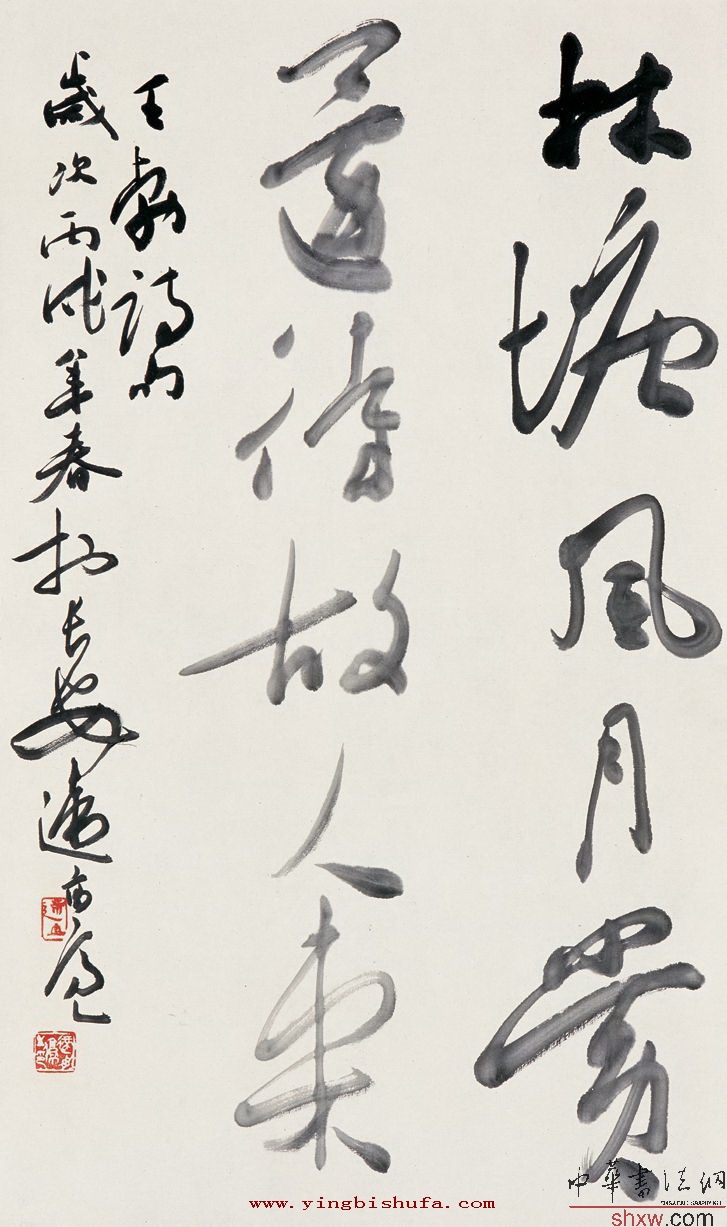 林塘風月賞
還待故人來
王勃詩句
歲次丙戌年春於長安
www.yingbishufa.com
中華書法網
shxw.com